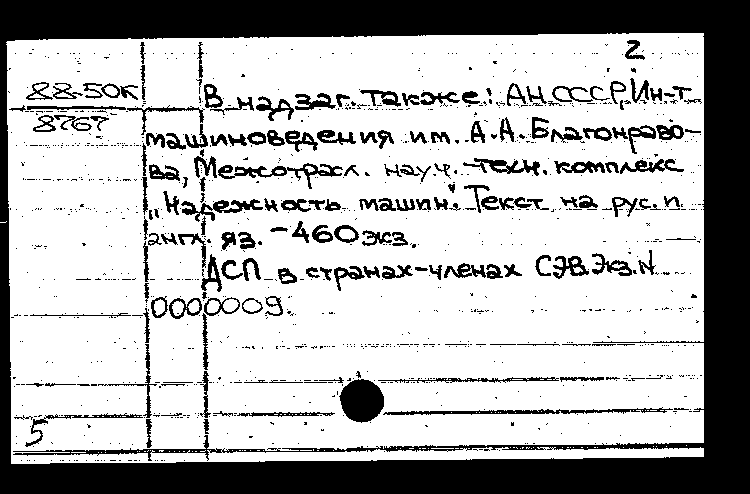 2
88-50К
8767
В надзаг. также: АН СССР, Ин-т
машиноведения им. А.А. Благонраво-
ва, Межотрасл. науч.-техн. комплекс
„Надежность машин". Текст на рус. и
англ. яз. -460 экз.
ДСП в странах-членах СЭВ. Экз. N
0000009.
5